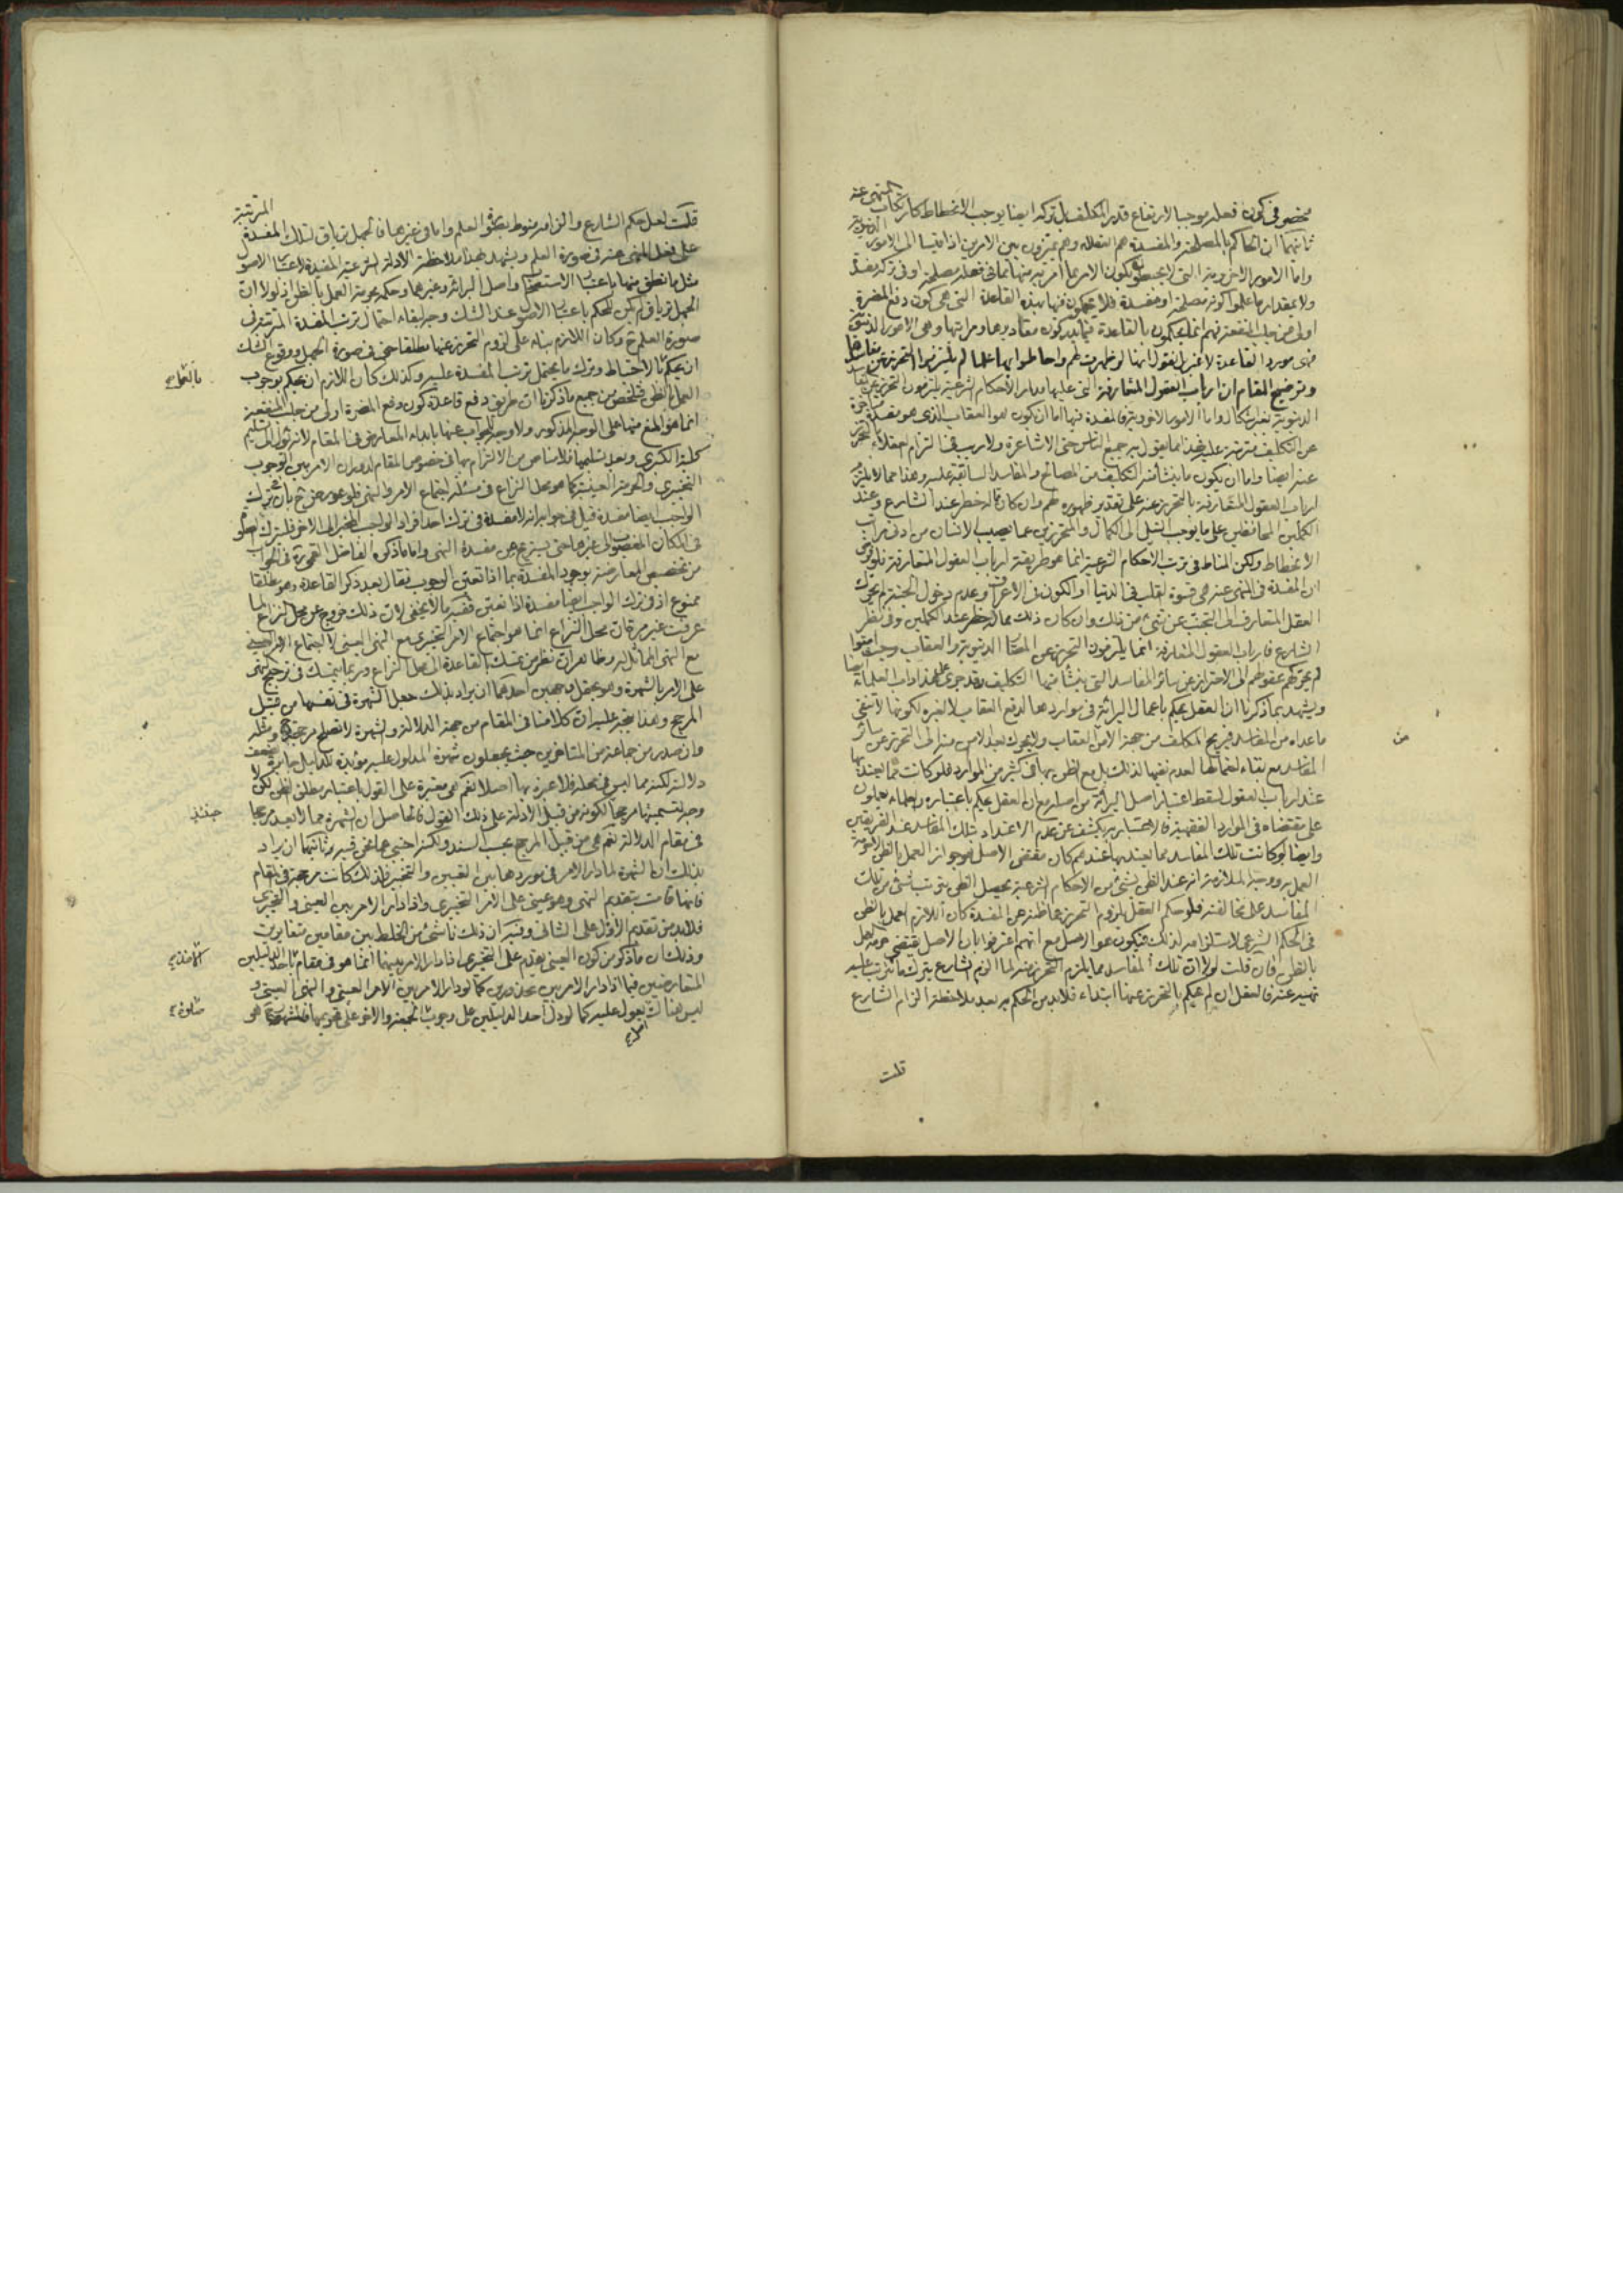 مخصوص في كون فعله موجبا لارتفاع قدر المكلف بل تركه ايضا يوجب الانحطاط كارتكاب المنهي عنه
ثانيهما ان الحاكم بالمصلحة والمفسدة هم العقلاء وهم يميزون بين الامرين اذا قيسا الى الامور الدنيوية
واما الامور الاخروية التي لا يحيطون بكون الامر بما امر به منها مما في فعله مصلحة او في تركه مفسدة
ولا بمقدار ما علموا كونه مصلحة او مفسدة فلا يحكمون فيها بهذه القاعدة التي هي كون دفع المضرة
اولى من جلب المنفعة فهم انما يحكمون بالقاعدة فيما يدركون مقاديرها ومراتبها وهي الامور الدنيوية
فهي مورد القاعدة لا غير بل نقول انها لو ظهرت لهم واحاطوا بها علما لم يلتزموا التحرز عن مفاسدها
وتوضيح المقام ان ارباب العقول المتعارفة التي عليها مدار الاحكام الشرعية يلتزمون التحرز عن مفاسد
الدنيوية بغير اشكال واما الامور الاخروية فالمفسدة فيها اما ان يكون هو العقاب الذي هو مفسدة
عن التكليف مترتبة عليه فهذا مما يقول به جميع الناس حتى الاشاعرة ولا ريب في التزام العقلاء بالتحرز
عنه ايضا واما ان يكون ما ينشأ منه التكليف من المصالح والمفاسد السابقة عليه وهذا مما لا يلتزم
ارباب العقول المتعارفة بالتحرز عنه على تقدير ظهوره لهم وان كان له خطر عند الشارع وعند
الكملين المحافظين على ما يوجب النيل الى الكمال والمتحرزين عما يصيب الانسان من ادنى مراتب
الانحطاط ولكن المناط في ترتب الاحكام الشرعية انما هو طريقة ارباب العقول المتعارفة فلو فرض
ان المفسدة في المنهي عنه هي قسوة القلب في الدنيا او الكون في الاعراف وعدم دخول الجنة لم يحرك
العقل المتعارف الى التجنب عن شيء من ذلك وان كان ذلك مما له خطر عند الكملين وفي نظر
الشارع فارباب العقول المتعارفة انما يلتزمون التحرز عن المضار الدنيوية والعقاب وحيث امنوا
لم يحركهم عقولهم الى الاحتراز عن سائر المفاسد التي ينشأ منها التكليف وقد جرى على هذا داب العلماء ايضا
ويشهد بما ذكرنا ان العقل يحكم باعمال البراءة في مواردها لدفع العقاب لا لغيره لكونها لا تنفي
ما عداه من المفاسد فيريح المكلف من جهة الامن العقاب ولا يحرك بعد الامن منه الى التحرز عن سائر
المفاسد مع بقاء احتمالها لعدم نفيها لذلك بل مع الظن بها في كثير من الموارد فلو كانت مما يعتد بها
عند ارباب العقول لسقط اعتبار اصل البراءة من اصله مع ان العقل يحكم باعتباره والعلماء يعملون
على مقتضاه في الموارد الفقهية فالاعتبار به يكشف عن عدم الاعتداد بتلك المفاسد عند الفريقين
وايضا لو كانت تلك المفاسد مما يعتد بها عندهم كان مقتضى الاصل هو جواز العمل بالظن لا حرمة
العمل به ووجه الملازمة انه عند الظن بشيء من الاحكام الشرعية يحصل الظن بترتب شيء من تلك
المفاسد على مخالفته فلو حكم العقل بلزوم التحرز عما ظن من المفسدة كان اللازم العمل بالظن
في الحكم الشرعي لاستلزامه لذلك فيكون هو الاصل مع انهم اعترفوا بان الاصل يقتضي حرمة العمل
بالظن فان قلت لولا ان تلك المفاسد مما يلزم التحرز عنه لما الزم الشارع بترك ما يترتب عليه
نهيه عنه فالعقل ان لم يحكم بالتحرز عنها ابتداء فلا بد من الحكم به بعد ملاحظة الزام الشارع
قلت
من
قلت لعل حكم الشارع والزامه منوط بصورة العلم واما في غيرها فالجهل ترياق لتلك المفسدة المترتبة
على فعل المنهي عنه في صورة العلم ويشهد بهذا ملاحظة الادلة الشرعية المفيدة لاعتبار الاصول
مثل ما نطق منها باعتبار الاستصحاب واصل البراءة وغيرهما وحكمه بحرمة العمل بالظن اذ لولا ان
الجهل ترياق لم يكن للحكم باعتبار الاصول عند الشك وجه لبقاء احتمال ترتب المفسدة المترتبة في
صورة العلم ح وكان اللازم بناء على لزوم التحرز عنها مطلقا حتى في صورة الجهل ووقوع الشك
ان يحكم بالاحتياط وترك ما يحتمل ترتب المفسدة عليه وكذلك كان اللازم ان يحكم بوجوب
العمل بالظن فتلخص من جميع ما ذكرنا ان طريق دفع قاعدة كون دفع المضرة اولى من جلب المنفعة
انما هو المنع منها على الوجه المذكور ولا وجه للجواب عنها بابداء المعارض في المقام لانه يؤل الى تسليم
كلية الكبرى وبعد تسليمها فلا مناص من الالتزام بها في خصوص المقام لدوران الامر بين الوجوب
التخييري والحرمة العينية كما هو محل النزاع في مسئلة اجتماع الامر والنهي فلو عورض ح بان في ترك
الواجب ايضا مفسدة قيل في جوابه انه لا مفسدة في ترك احد افراد الواجب المخير الى الاخر فليترك الصلوة
في المكان المغصوب الى غيرها حتى يستريح من مفسدة النهي واما ما ذكره الفاضل القمي ره في الجواب
من تخصيص المعارضة بوجود المفسدة بما اذا تعين الوجوب فقال بعد ذكر القاعدة وهو مطلقا
ممنوع اذ في ترك الواجب ايضا مفسدة اذا تعين ففيه ما لا يخفى لان ذلك خروج عن محل النزاع لما
عرفت غير مرة ان محل النزاع انما هو اجتماع الامر التخييري مع النهي العيني لا اجتماع الامر العيني
مع النهي المماثل له وظاهر ان نظر من تمسك بالقاعدة الى محل النزاع وربما يتمسك في ترجيح النهي
على الامر بالشهرة وهو يحتمل وجهين احدهما ان يراد بذلك جعل الشهرة في نفسها من قبيل
المرجح وهذا يتجه عليه ان كلامنا في المقام من جهة الدلالة والشهرة لا تصلح مرجحة
وان صدر من جماعة من المتاخرين حيث يجعلون شهرة المدلول عليه مؤيدة للدليل جابرة لضعف
دلالته لكنه مما ليس في محله فلا عبرة بها اصلا نعم هي معتبرة على القول باعتبار مطلق الظن لكن لا
وجه لتسميتها مرجحا لكونه من قبيل الادلة على ذلك القول فالحاصل ان الشهرة مما لا يعد مرجحا
في مقام الدلالة نعم هي من قبيل المرجح بحسب السند ولكنه اجنبي عما نحن فيه وثانيهما ان يراد
بذلك ان الشهرة لما دار الامر في موردها بين التعيين والتخيير فلذلك كانت مرجحة في المقام
فانها قامت بتقديم النهي وهو عيني على الامر التخييري واذا دار الامر بين العيني والتخييري
فلا بد من تقديم الاول على الثاني وفيه ان ذلك ناشئ من الخلط بين مقامين متغايرين
وذلك ان ما ذكر من كون العيني يقدم على التخييري اذا دار الامر بينهما انما هو في مقام الاخذ باحد الدليلين
المتعارضين فيما اذا دار الامر بين محذورين كما لو دار الامر بين الامر العيني والنهي العيني و
ليس هناك اصل يعول عليه كما لو دل احد الدليلين على وجوب صلوة الجمعة والاخر على تحريمها فالشهرة هو
بالعمل صح
حينئذ
الاخذ صح
صلوة صح
اصل صح